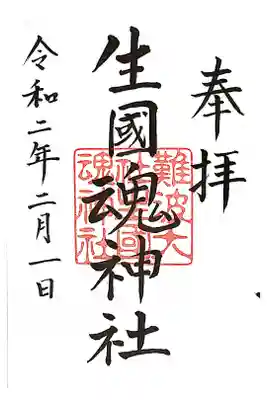 奉拝
生國魂神社
難波大
社生國
魂神社
令和二年二月一日